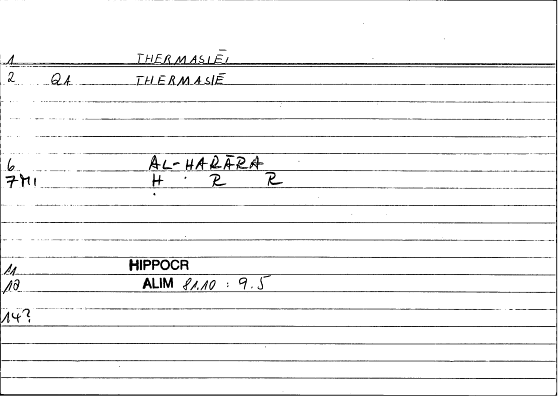 1 THERMASIĒI
2 QA THERMASIĒ
6 AL-HARĀRA
7MI H R R
11 HIPPOCR
ALIM 81.10 : 9.5
14?